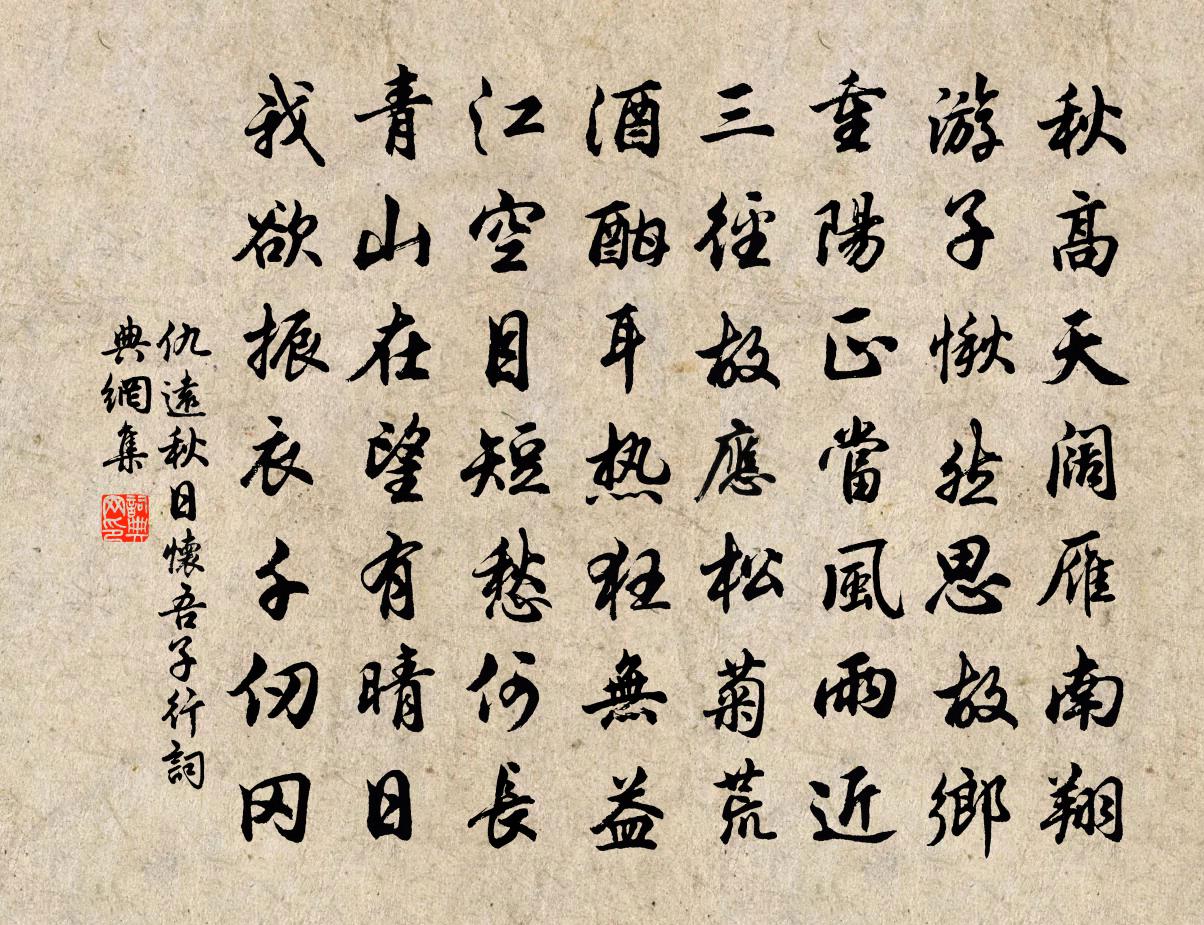 秋高天闊雁南翔
游子愀然思故鄉
重陽正當風雨近
三徑故應松菊荒
酒酣耳热狂無益
江空目短愁何長
青山在望有晴日
我欲振衣千仞冈
仇遠秋日懷吾子行詞
典網集
詞典网印